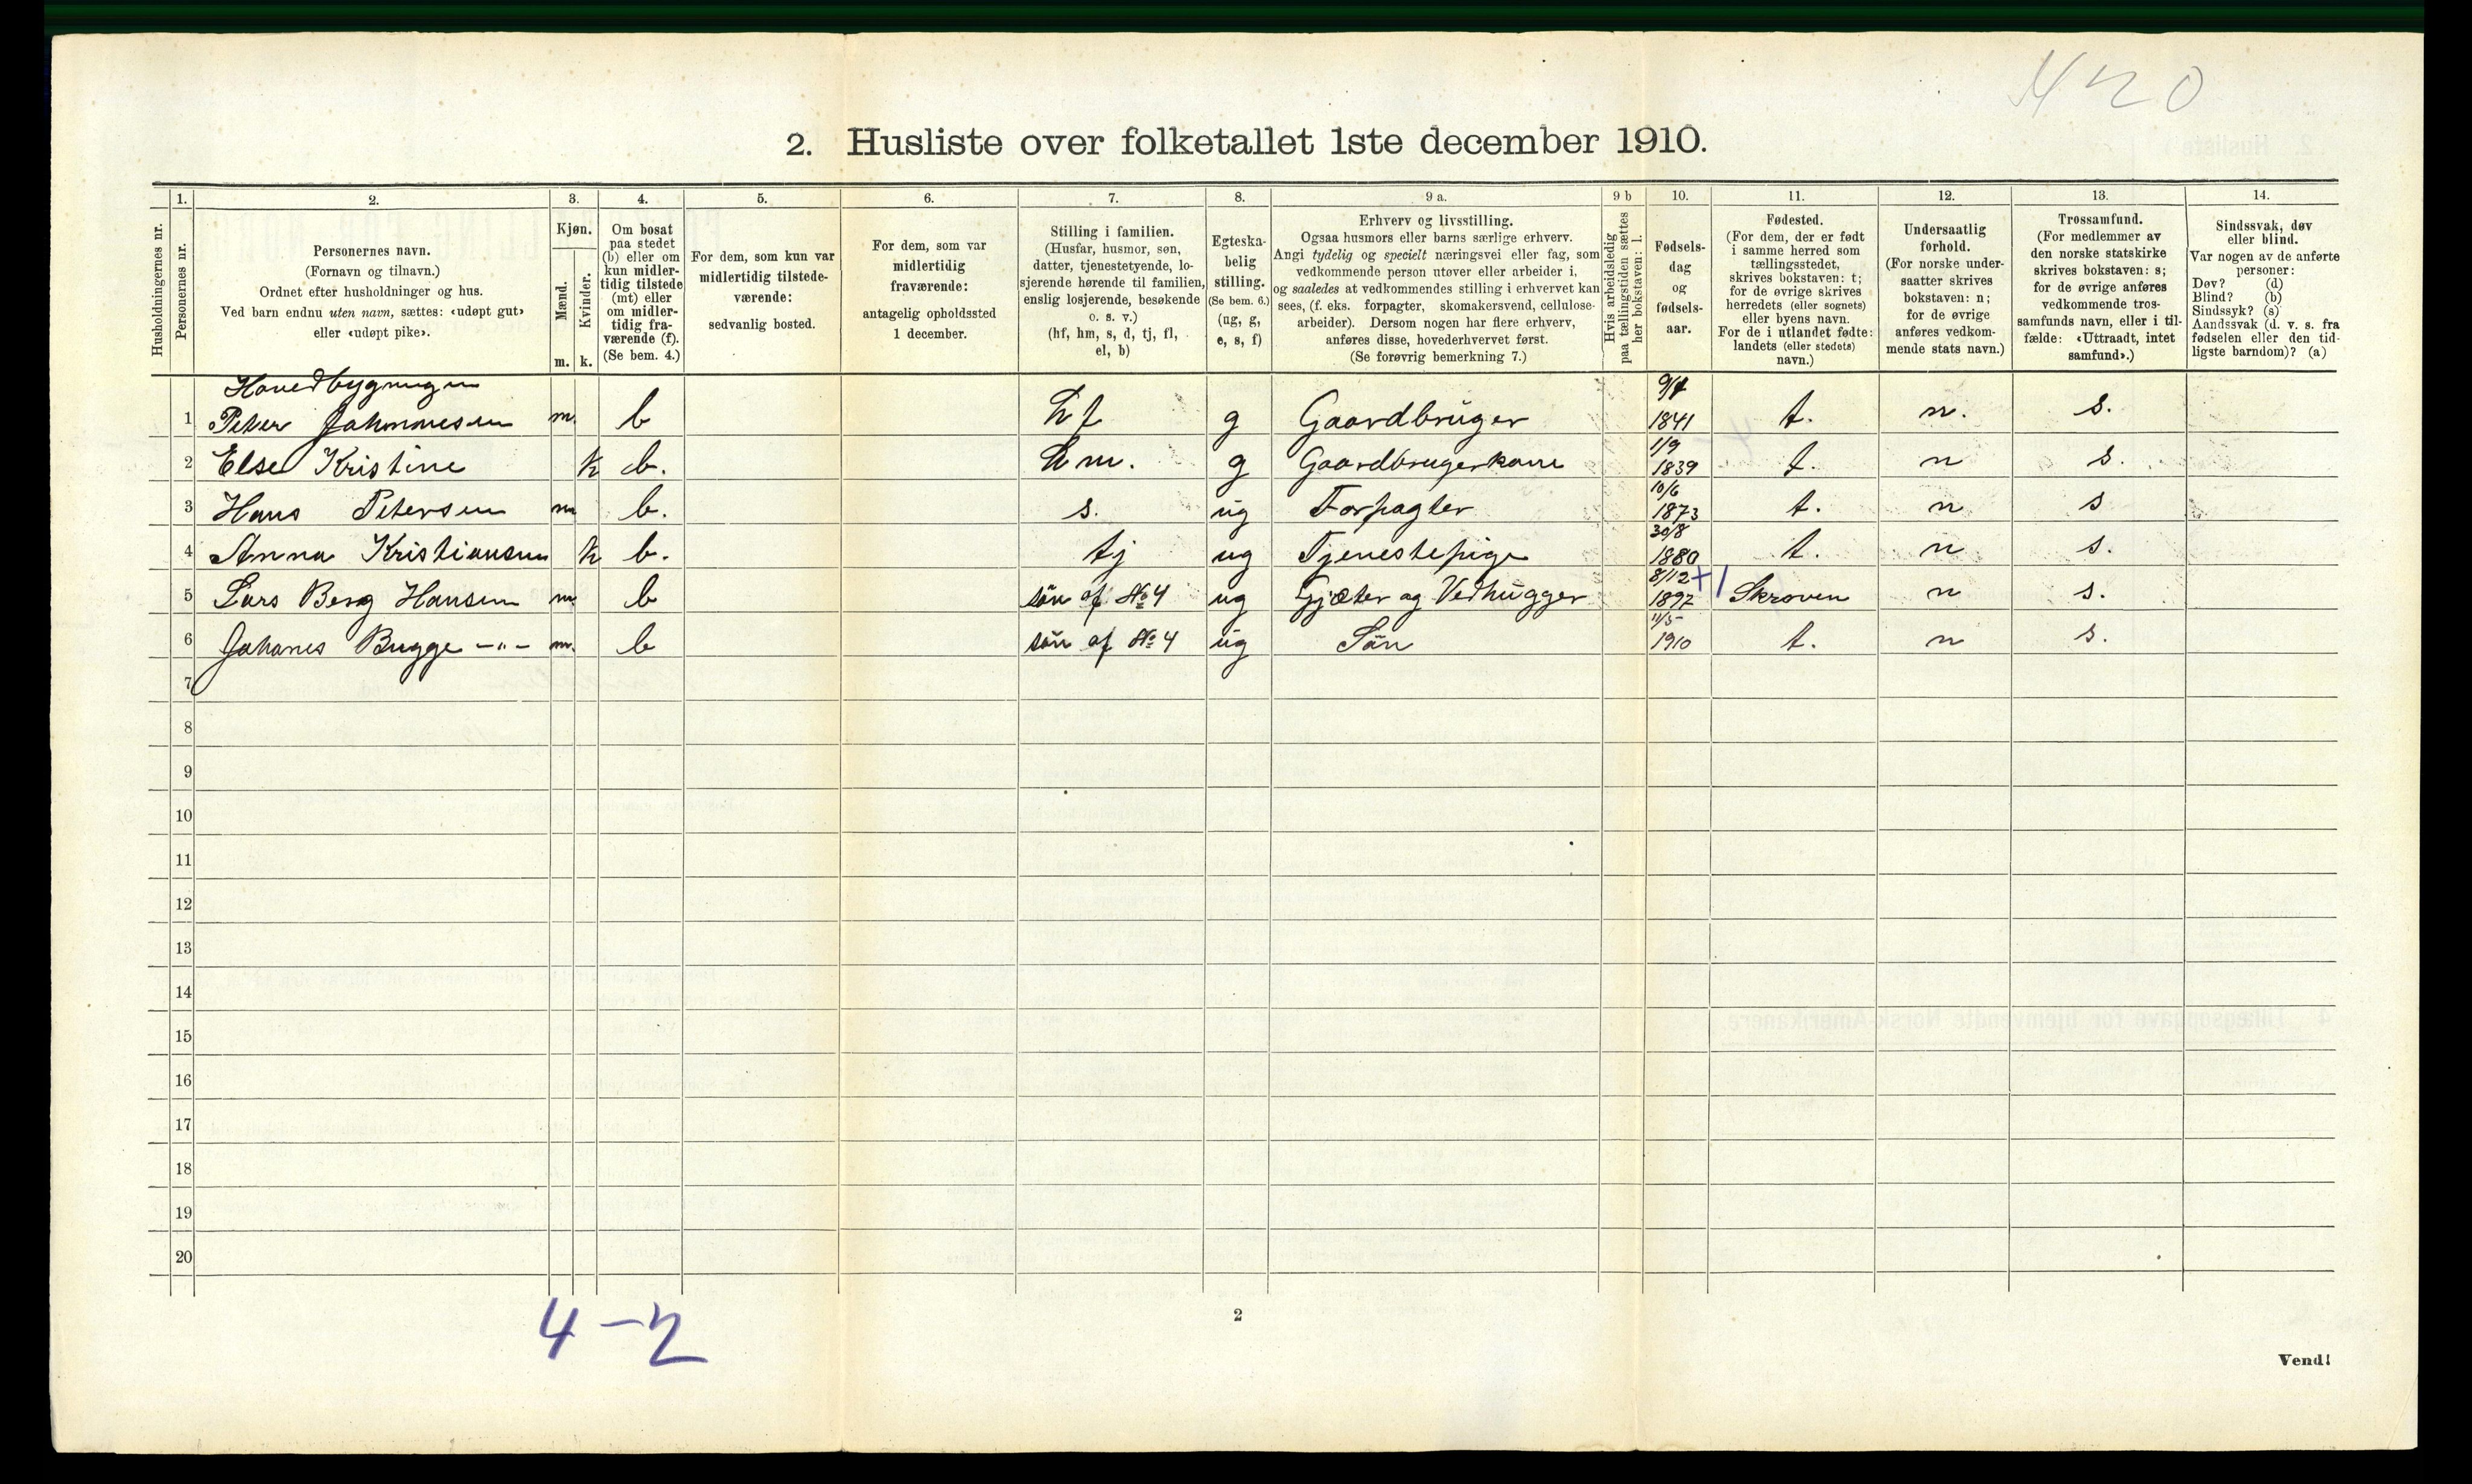 420
2. Husliste over folketallet 1ste december 1910.
Husholdningernes nr.
1. Personernes nr.
2. Personernes navn.
(Fornavn og tilnavn.)
Ordnet efter husholdninger og hus.
Ved barn endnu uten navn, sættes: «udøpt gut»
eller «udøpt pike».
3. Kjøn.
Mænd. m.
Kvinder. k.
4. Om bosat
paa stedet
(b) eller om
kun midler-
tidig tilstede
(mt) eller
om midler-
tidig fra-
værende (f).
(Se bem. 4.)
5. For dem, som kun var
midlertidig tilstede-
værende:
sedvanlig bosted.
6. For dem, som var
midlertidig
fraværende:
antagelig opholdssted
1 december.
7. Stilling i familien.
(Husfar, husmor, søn,
datter, tjenestetyende, lo-
sjerende hørende til familien,
enslig losjerende, besøkende
o. s. v.)
(hf, hm, s, d, tj, fl,
el, b)
8. Egteska-
belig
stilling.
(Se bem. 6.)
(ug, g,
e, s, f)
9 a. Erhverv og livsstilling.
Ogsaa husmors eller barns særlige erhverv.
Angi tydelig og specielt næringsvei eller fag, som
vedkommende person utøver eller arbeider i,
og saaledes at vedkommendes stilling i erhvervet kan
sees, (f. eks. forpagter, skomakersvend, cellulose-
arbeider). Dersom nogen har flere erhverv,
anføres disse, hovederhvervet først.
(Se forøvrig bemerkning 7.)
9 b Hvis arbeidsledig
paa tællingstiden sættes
her bokstaven: l.
10. Fødsels-
dag
og
fødsels-
aar.
11. Fødested.
(For dem, der er født
i samme herred som
tællingsstedet,
skrives bokstaven: t;
for de øvrige skrives
herredets (eller sognets)
eller byens navn.
For de i utlandet fødte:
landets (eller stedets)
navn.)
12. Undersaatlig
forhold.
(For norske under-
saatter skrives
bokstaven: n;
for de øvrige
anføres vedkom-
mende stats navn.)
13. Trossamfund.
(For medlemmer av
den norske statskirke
skrives bokstaven: s;
for de øvrige anføres
vedkommende tros-
samfunds navn, eller i til-
fælde: «Uttraadt, intet
samfund».)
14. Sindssvak, døv
eller blind.
Var nogen av de anførte
personer:
Døv? (d)
Blind? (b)
Sindssyk? (s)
Aandssvak (d. v. s. fra
fødselen eller den tid-
ligste barndom)? (a)
Hovedbygningen
1 Peter Johannesen m. b hf g Gaardbruger 1841 t. n. s.
2 Else Kristine k b. hm. g Gaardbrugerkone 1/9 1839 t. n s.
3 Hans Petersen m b. s. ug Forpagter 10/6 1873 t. n s
4 Anna Kristiansen k b. tj ug Tjenestepige 30/8 1880 t. n s.
5 Lars Berg Hansen m b søn af № 4 ug Gjæter og Vedhugger 8/12 1897 Skroven n s.
6 Johanes Bugge -"- m. b søn af № 4 ug Søn 11/5 1910 t. n s.
7
8
9
10
11
12
13
14
15
16
17
18
19
20
4 - 2
2
Vend!